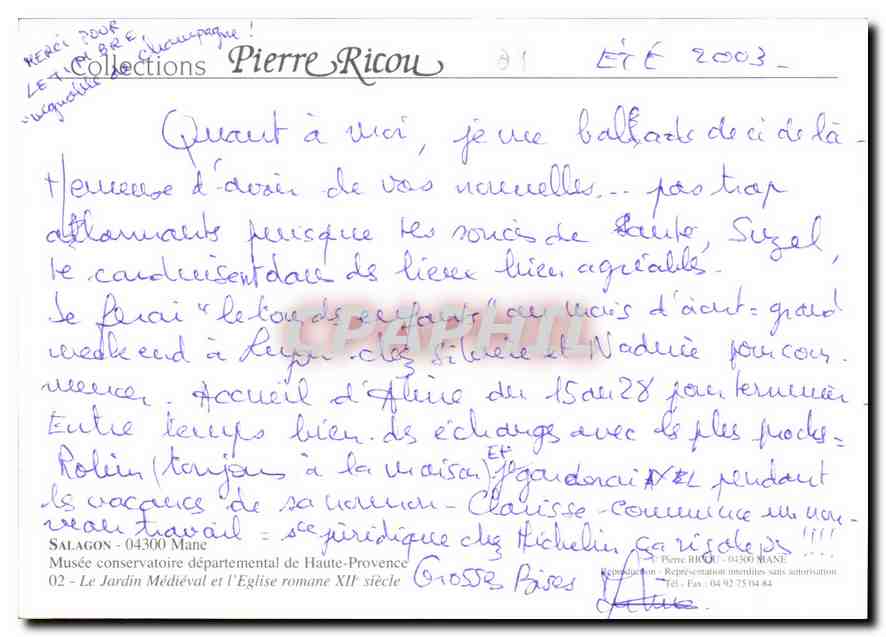 MERCI POUR
LE TIMBRE,
vignoble de champagne !
Collections Pierre Ricou 91 ÉTÉ 2003 -
Quant à moi, je me ballade de ci de là -
Heureuse d'avoir de vos nouvelles... pas trop
alarmantes puisque tes soucis de santé, Suzel,
te conduisent dans des lieux bien agréables.
Je ferai "le tour des enfants" au mois d'août = grand
week end à chez et Nadine pour com-
mencer. Accueil d'Aline du 15 au 28 pour terminer
Entre temps bien des échanges avec les plus proches =
Robin (toujours à la maison) ET je garderai AXEL pendant
les vacances de sa maman - Clarisse - commence un nou-
veau travail = sce juridique chez Michelin, ça rigole pas !!!!
Grosses Bises
SALAGON - 04300 Mane
Musée conservatoire départemental de Haute-Provence
02 - Le Jardin Médiéval et l'Eglise romane XIIe siècle
© Pierre RICOU - 04300 MANE
Reproduction - Représentation interdites sans autorisation
Tél - Fax : 04 92 75 04 84
CPAPHIL